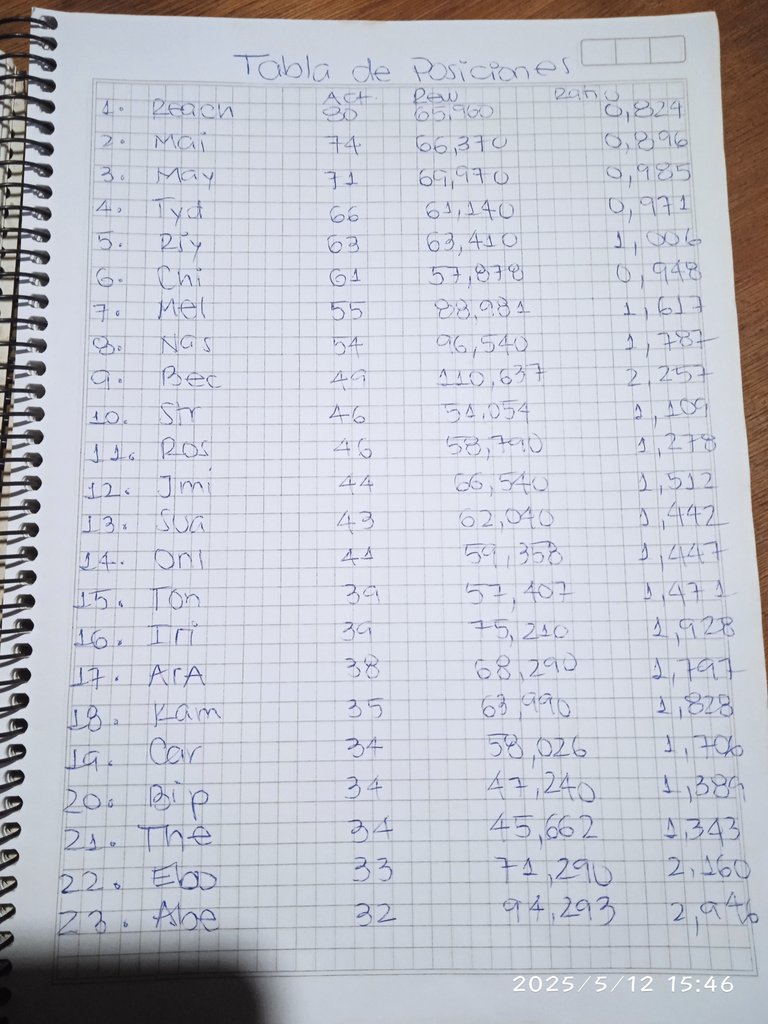 Tabla de Posiciones
Act. Rew Ratio
1. Reach 80 65,960 0,824
2. Mai 74 66,370 0,896
3. May 71 69,970 0,985
4. Tyd 66 61,140 0,971
5. Riy 63 63,410 1,006
6. Chi 61 57,878 0,948
7. Mel 55 88,981 1,617
8. Nas 54 96,540 1,787
9. Bec 49 110,637 2,257
10. Str 46 51,054 1,109
11. Ros 46 58,790 1,278
12. Jmi 44 66,540 1,512
13. Sua 43 62,040 1,442
14. Oni 41 59,358 1,447
15. Ton 39 57,407 1,471
16. Iri 39 75,210 1,928
17. ArA 38 68,290 1,797
18. Kam 35 63,990 1,828
19. Car 34 58,026 1,706
20. Bip 34 47,240 1,389
21. The 34 45,662 1,343
22. Ebo 33 71,290 2,160
23. Abe 32 94,293 2,946
2025/5/12 15:46